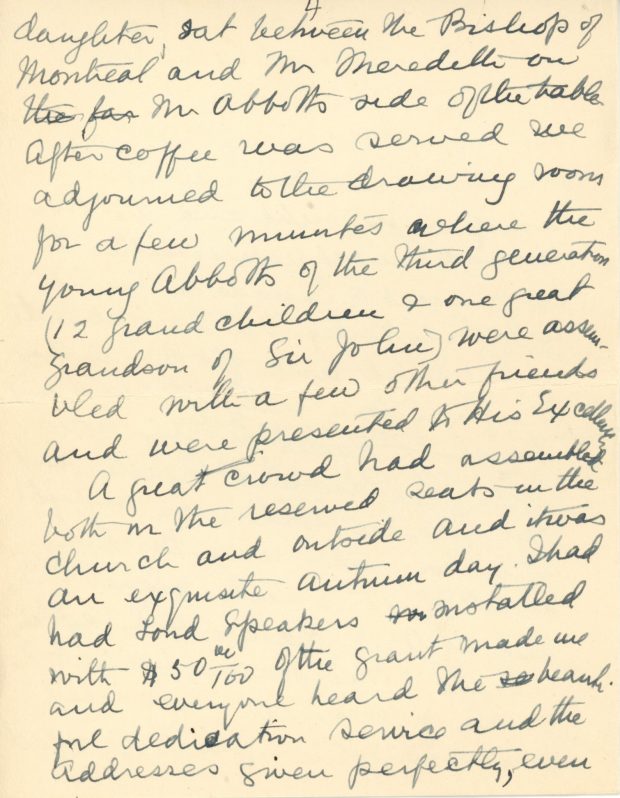 4
daughter, sat between the Bishop of
Montreal and Mr Meredith on
the far Mr Abbotts side of the table
After coffee was served we
adjourned to the drawing room
for a few minutes where the
young Abbotts of the third generation
(12 grand children & one great
grandson of Sir John) were assem-
bled with a few other friends
and were presented to His Excellency
A great crowd had assembled
both in the reserved seats in the
church and outside and it was
an exquisite autumn day. I had
had Loud Speakers installed
with $50 00/100 of the grant made me
and everyone heard the so beauti-
ful dedication service and the
addresses given perfectly, even